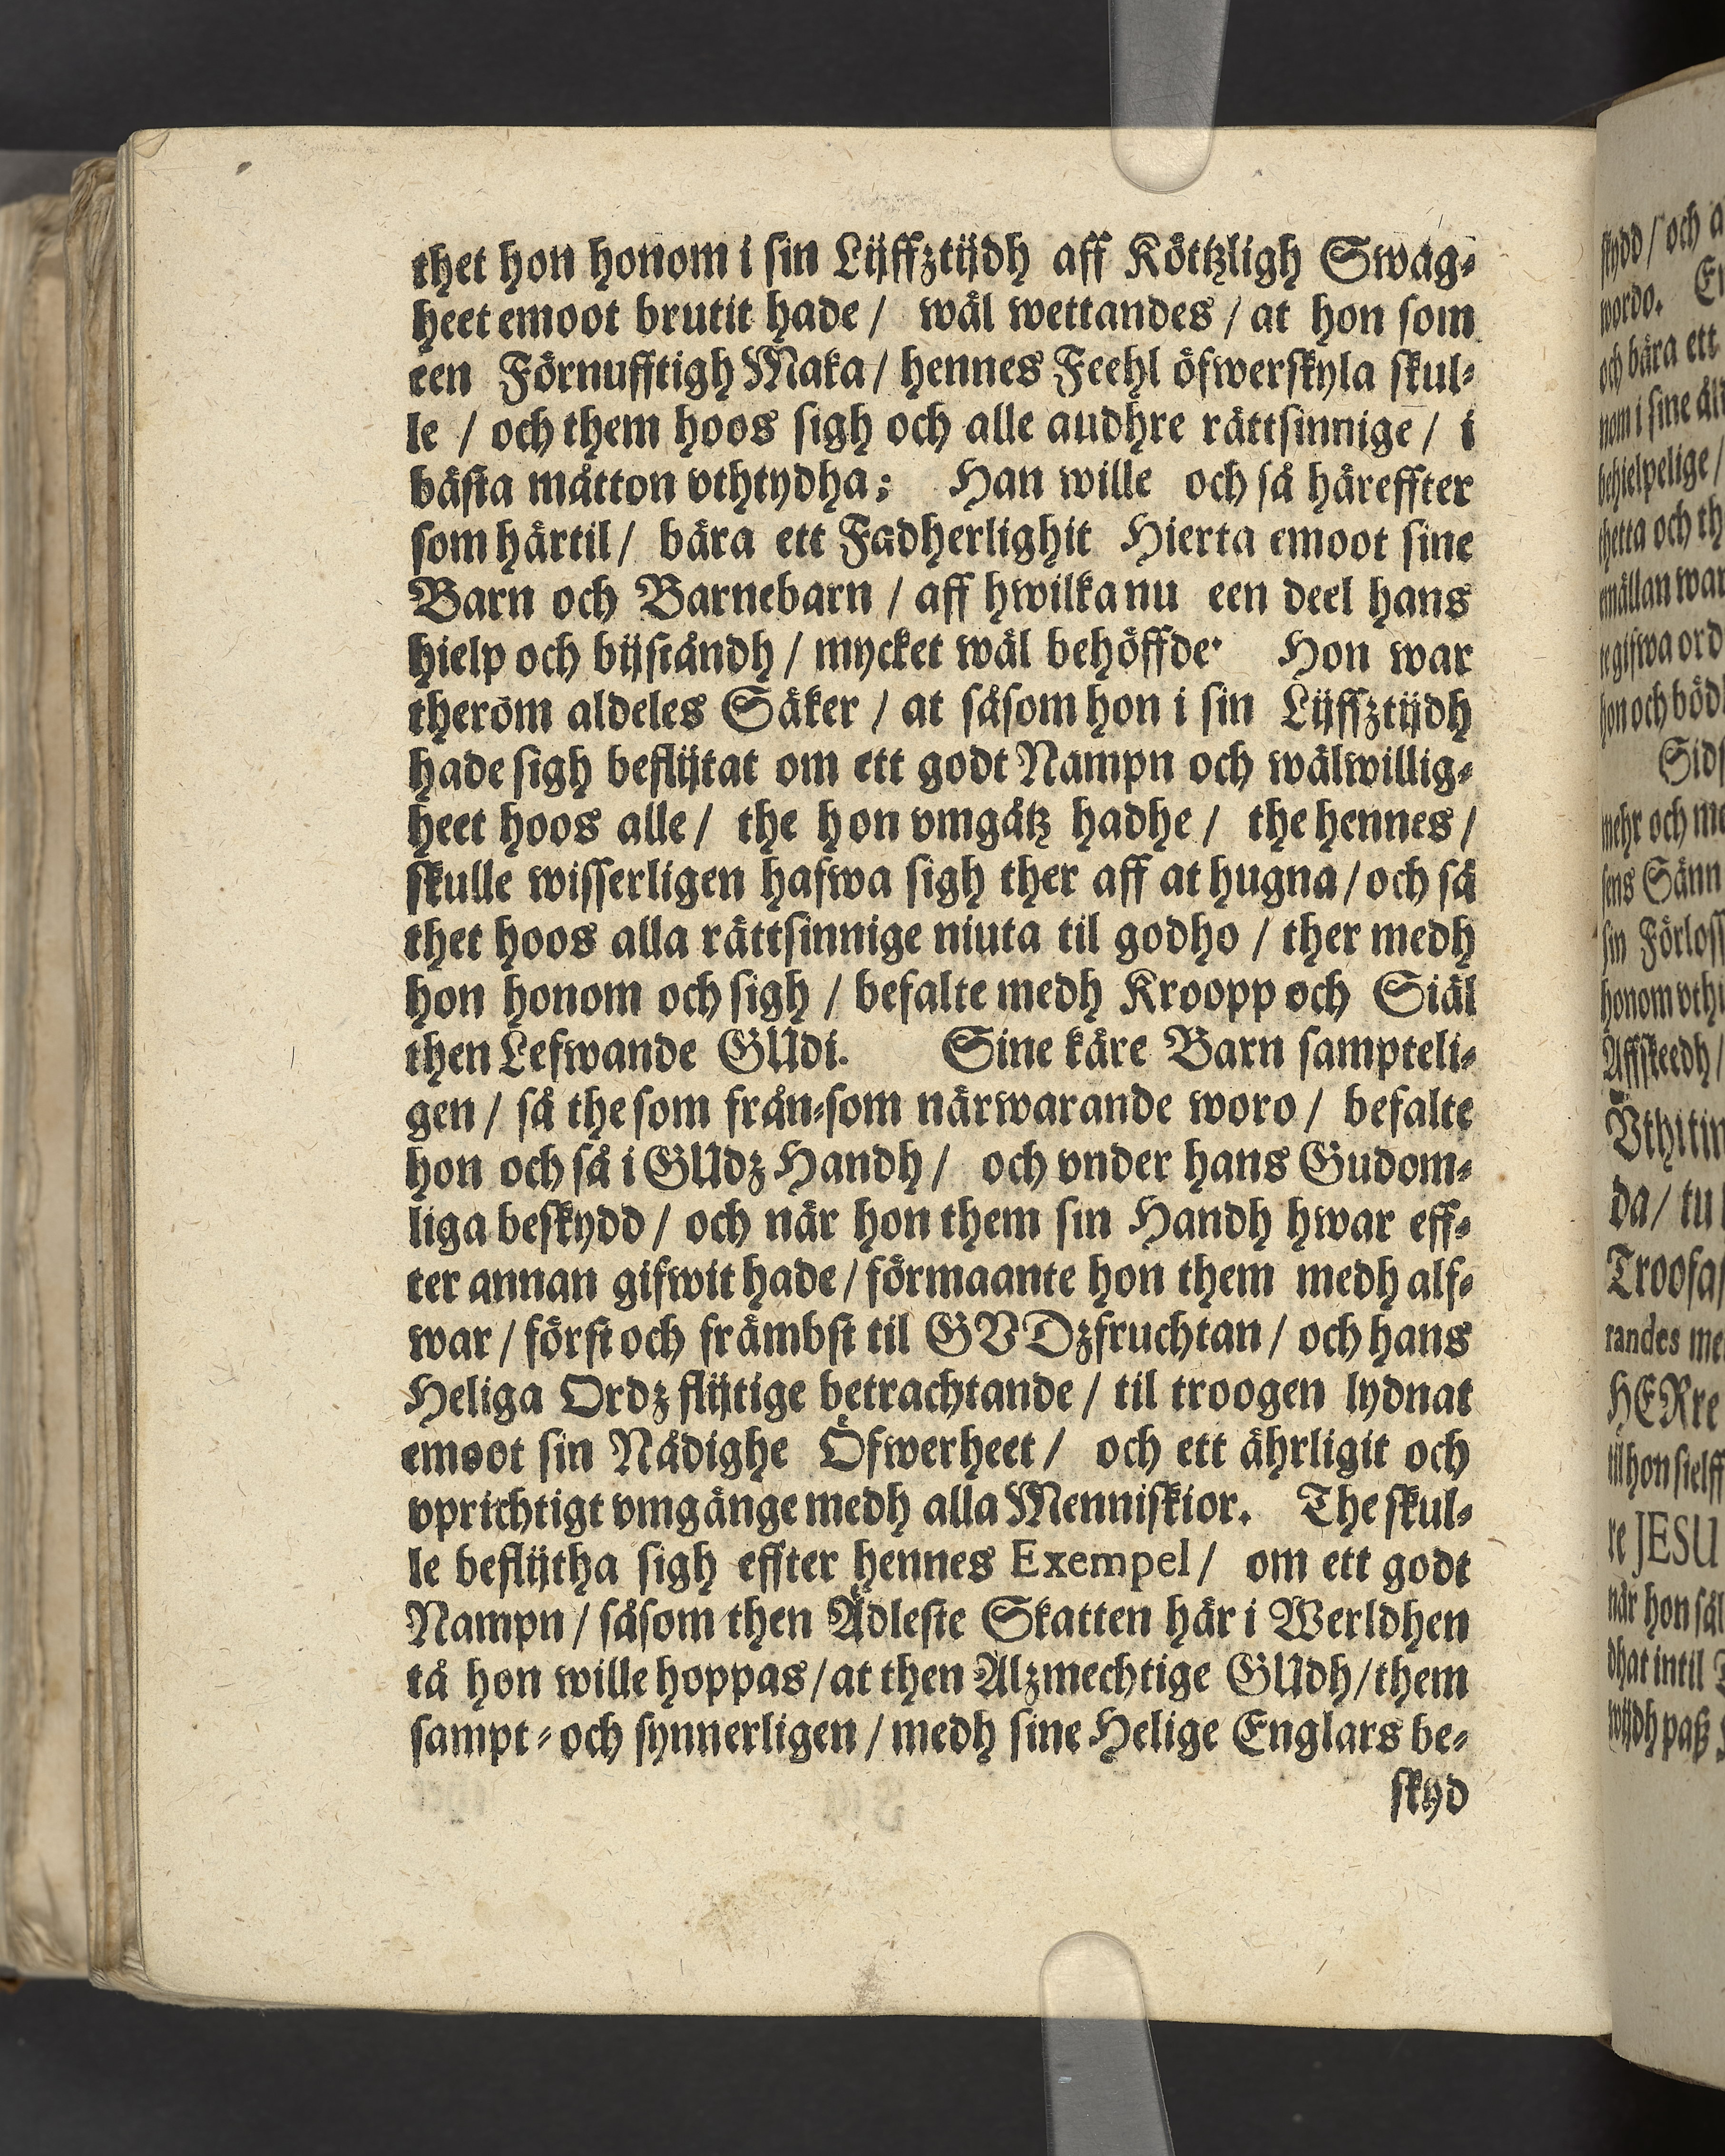 thet hon honom i sin Lijffztijdh aff Köttzligh Swag-
heet emoot brutit hade / wäl wettandes / at hon som
een Förnufftigh Maka / hennes Feehl öfwerskyla skul-
le / och them hoos sigh och alle audhre rättsinnige / i
bästa måtton vthtydha; Han wille och så häreffter
som härtil / bära ett Fadherlighit Hierta emoot sine
Barn och Barnebarn / aff hwilka nu een deel hans
hielp och bijståndh / mycket wäl behöffde. Hon war
therom aldeles Säker / at såsom hon i sin Lijffztijdh
hade sigh beflijtat om ett godt Nampn och wälwillig-
heet hoos alle / the hon vmgåtz hadhe / the hennes /
skulle wisserligen hafwa sigh ther aff at hugna / och så
thet hoos alla rättsinnige niuta til godho / ther medh
hon honom och sigh / befalte medh Kroopp och Siäl
then Lefwande GUdi. Sine käre Barn sampteli-
gen / så the som från-som närwarande woro / befalte
hon och så i GUdz Handh / och vnder hans Gudom-
liga beskydd / och när hon them sin Handh hwar eff-
ter annan gifwit hade / förmaante hon them medh alf-
war / först och främbst til GVDzfruchtan / och hans
Heliga Ordz flijtige betrachtande / til troogen lydnat
emoot sin Nådighe Öfwerheet / och ett ährligit och
vprichtigt vmgänge medh alla Menniskior. The skul-
le beflijtha sigh effter hennes Exempel / om ett godt
Nampn / såsom then Ädleste Skatten här i Werldhen
tå hon wille hoppas / at then Alzmechtige GUdh / them
sampt- och synnerligen / medh sine Helige Englars be-
skyd